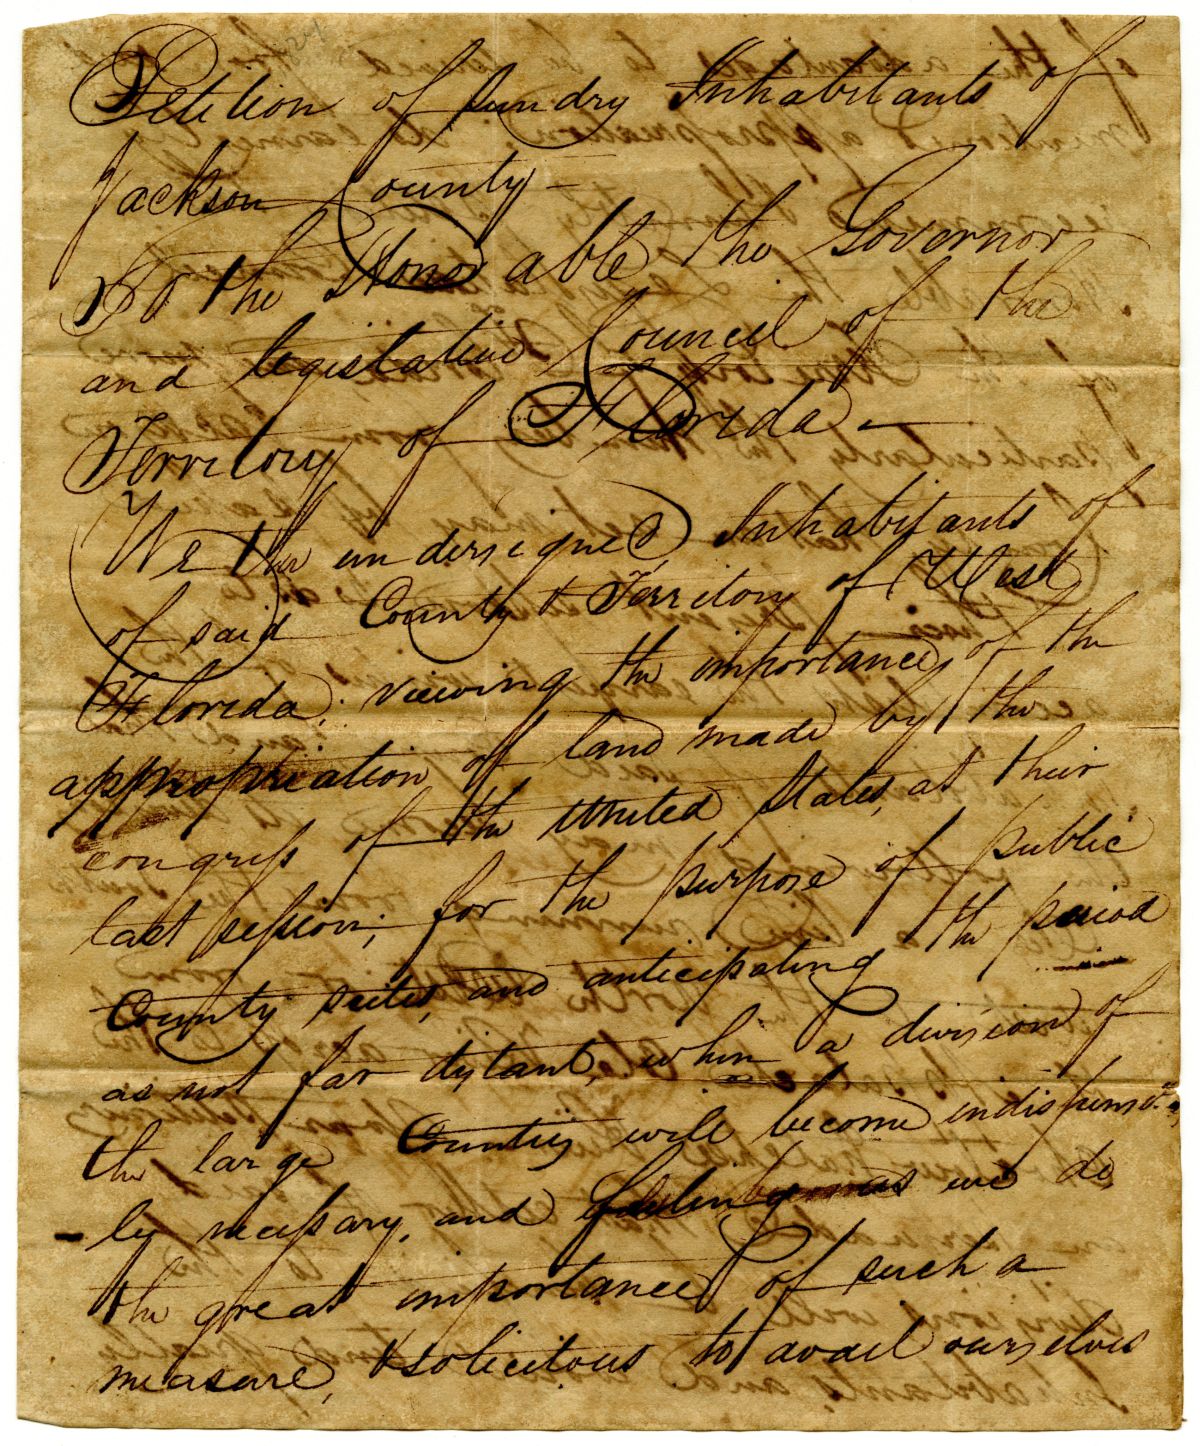 Petition of sundry Inhabitants of
Jackson County —
To the Honorable the Governor
and legislative Council of the
Territory of Florida —
We the undersigned Inhabitants of
of said County & Territory of West
Florida; viewing the importance, of the
appropriation of land made by the
congress of the United States, at their
last session; for the purpose of public
County scites, and anticipating the period
as not far distant, when a division of
the large Counties will become indispensa
ly necessary, and feeling as we do,
the great importance of such a
measure, & solicitous to avail ourselves